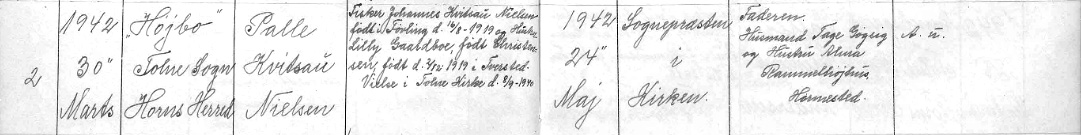 2
1942
30"
Marts
"Højbo"
Tolne Sogn
Horns Herred
Palle
Kvitsau
Nielsen
Fisker Johannes Kvitsau Nielsen
født i Tørling d. 16/8-1919 og Hustru
Lilly Gaardboe, født Christen-
sen, født d. 3/12 1919 i Tversted.
Vielse i Tolne Kirke d. 8/9-1940
1942
24"
Maj
Sognepræsten
i
Kirken.
Faderen.
Husmand Tage
og Hustru Alma
Hormested.
A. u.